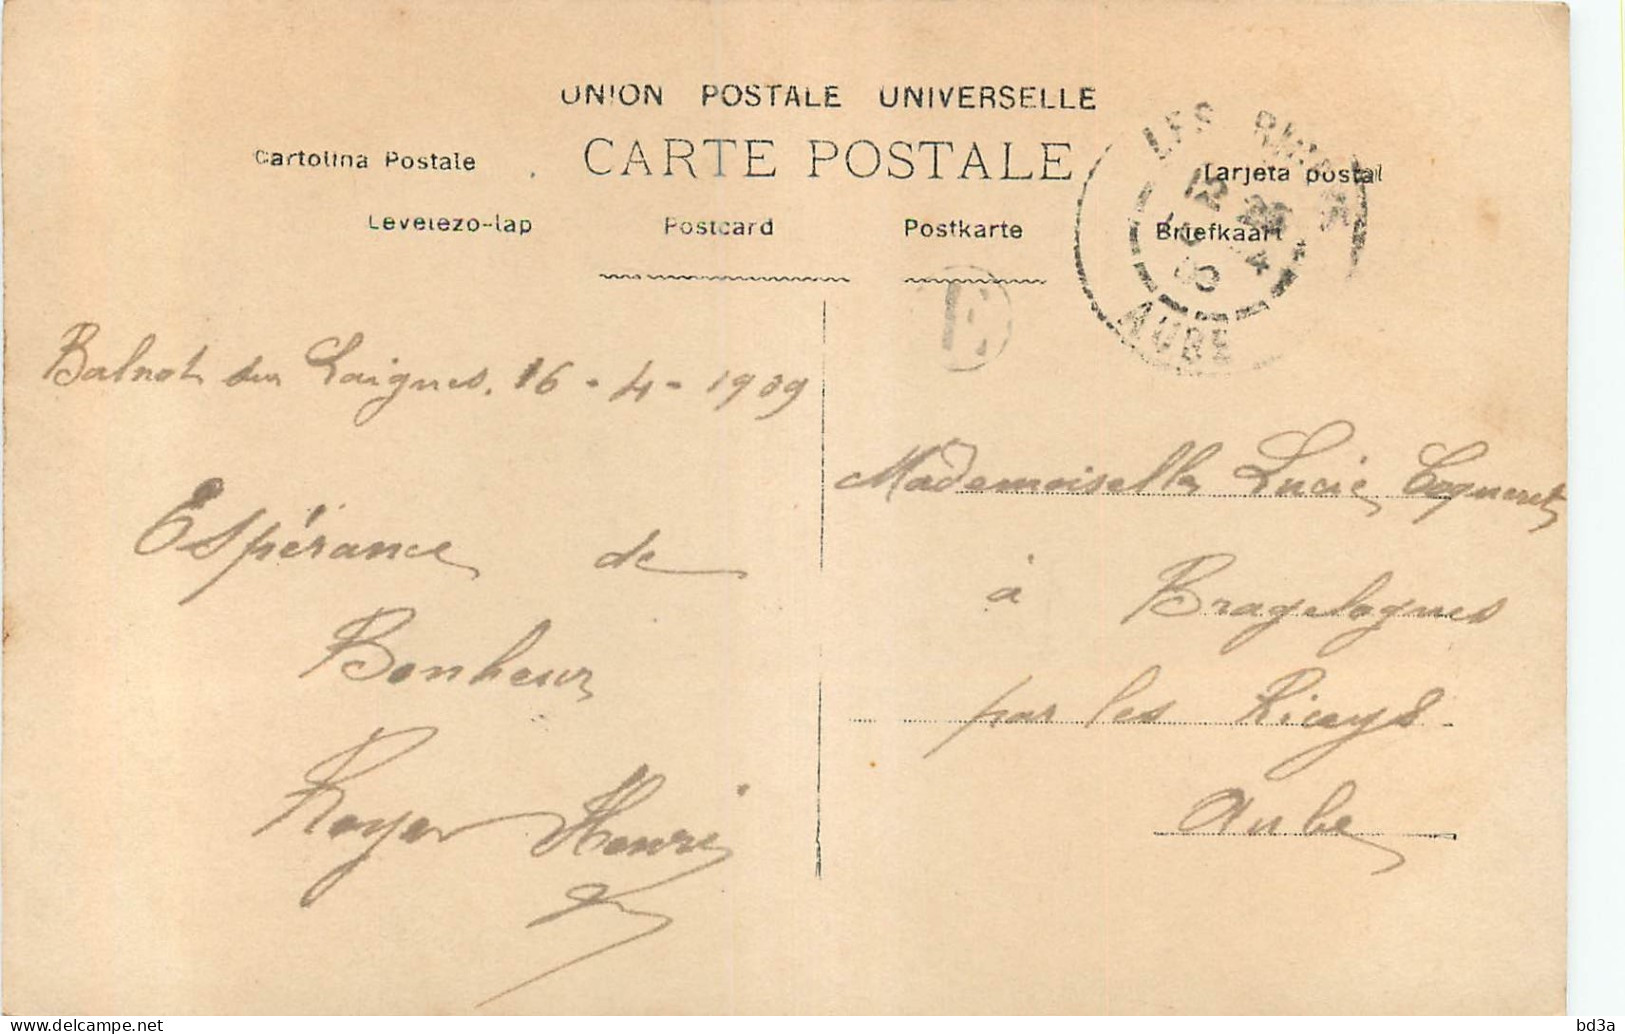 UNION POSTALE UNIVERSELLE
CARTE POSTALE
Cartolina Postale
Tarjeta postal
Levelezo-lap Postcard Postkarte Briefkaart
LES RICEYS
AUBE
E
Balnot sur Laignes. 16 - 4 - 1909
Espérance de
Bonheur
Royer Henri
Mademoiselle Lucie Coqueret
à Bragelognes
par les Riceys
Aube
bd3a